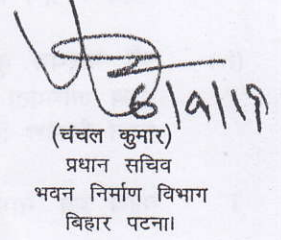 6/9/19
(चंचल कुमार)
प्रधान सचिव
भवन निर्माण विभाग
बिहार पटना।